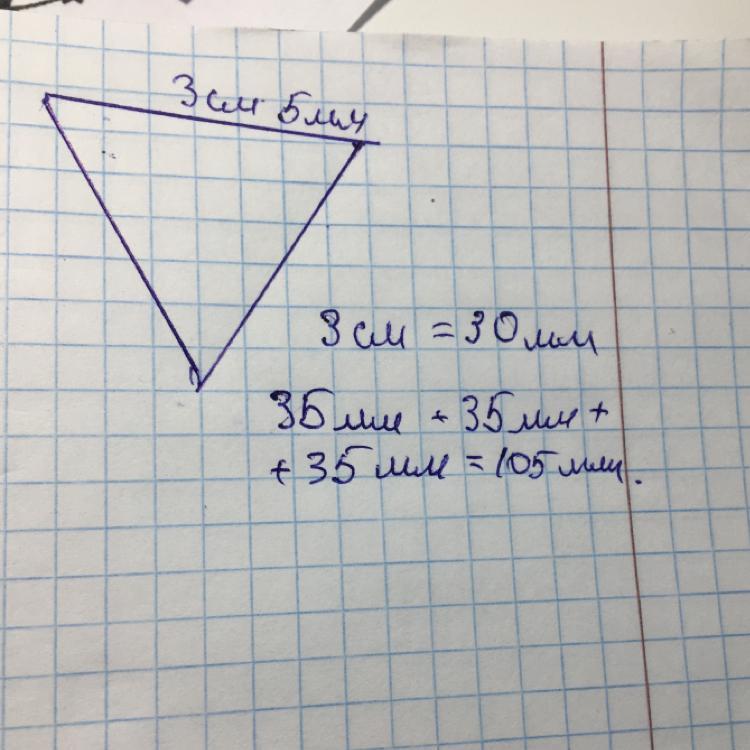 3см 5мм
3см = 30мм
35мм + 35мм +
+ 35мм = 105мм.